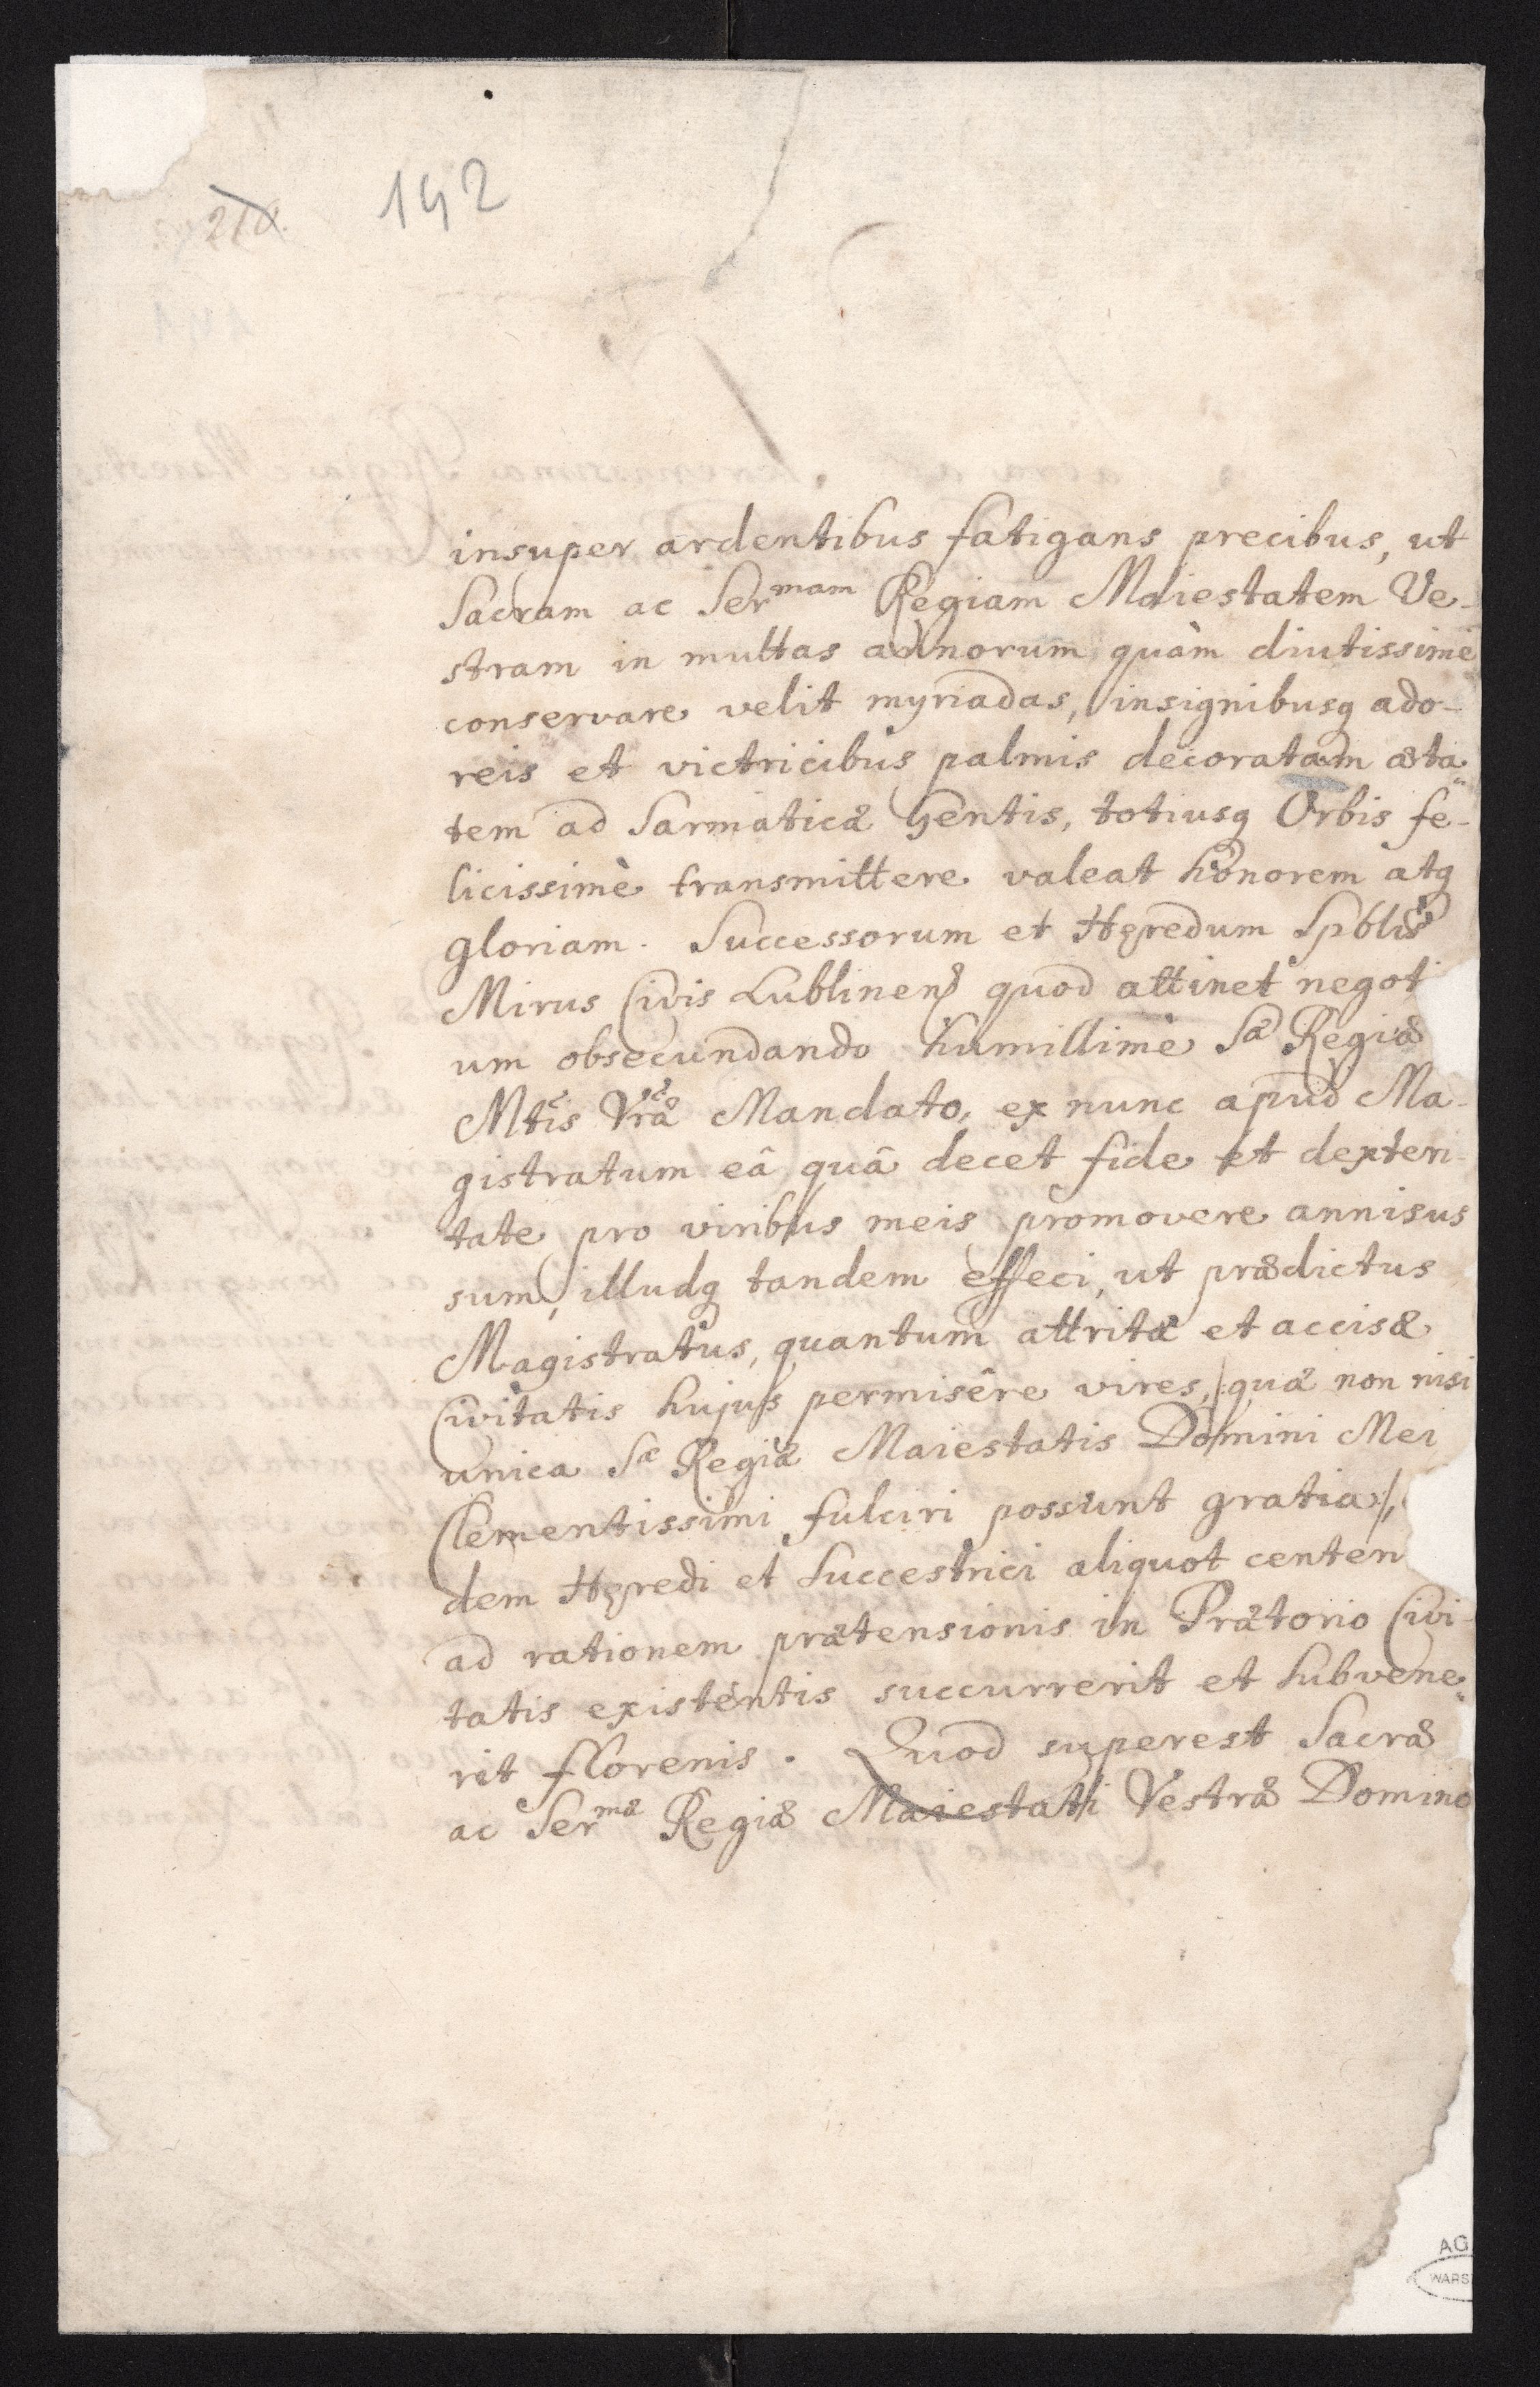 142
insuper ardentibus fatigans precibus, ut
Sacram ac Ser^mam Regiam Maiestatem Ve-
stram in multas annorum quàm diutissimè
conservare velit myriadas, insignibusq ado-
reis et victricibus palmis decoratam æta
tem ad Sarmaticæ Gentis, totiusq Orbis fe-
licissimè transmittere valeat honorem atq
gloriam. Successorum et Hęredum Spblis
Mirus Civis Lublinens quod attinet negot
um obsecundando humillimè Sæ Regiæ
Mtis Vræ Mandato, ex nunc apud Ma-
gistratum eâ quâ decet fide et dexteri-
tate pro viribus meis promovere annisus
sum, illudq tandem effeci, ut prædictus
Magistratus, quantum attritæ et accisæ
Civitatis hujus permisêre vires, /: quæ non nisi
unica Sæ Regiæ Maiestatis Domini Mei
Clementissimi fulciri possunt gratia :/,
dem Hęredi et Successtrici aliquot centen
ad rationem prætensionis in Prætorio Civi-
tatis existentis succurrerit et subvene
rit florenis. Quod superest Sacræ
ac Ser^mæ Regiæ Maiestati Vestræ Domino
AG
WARS